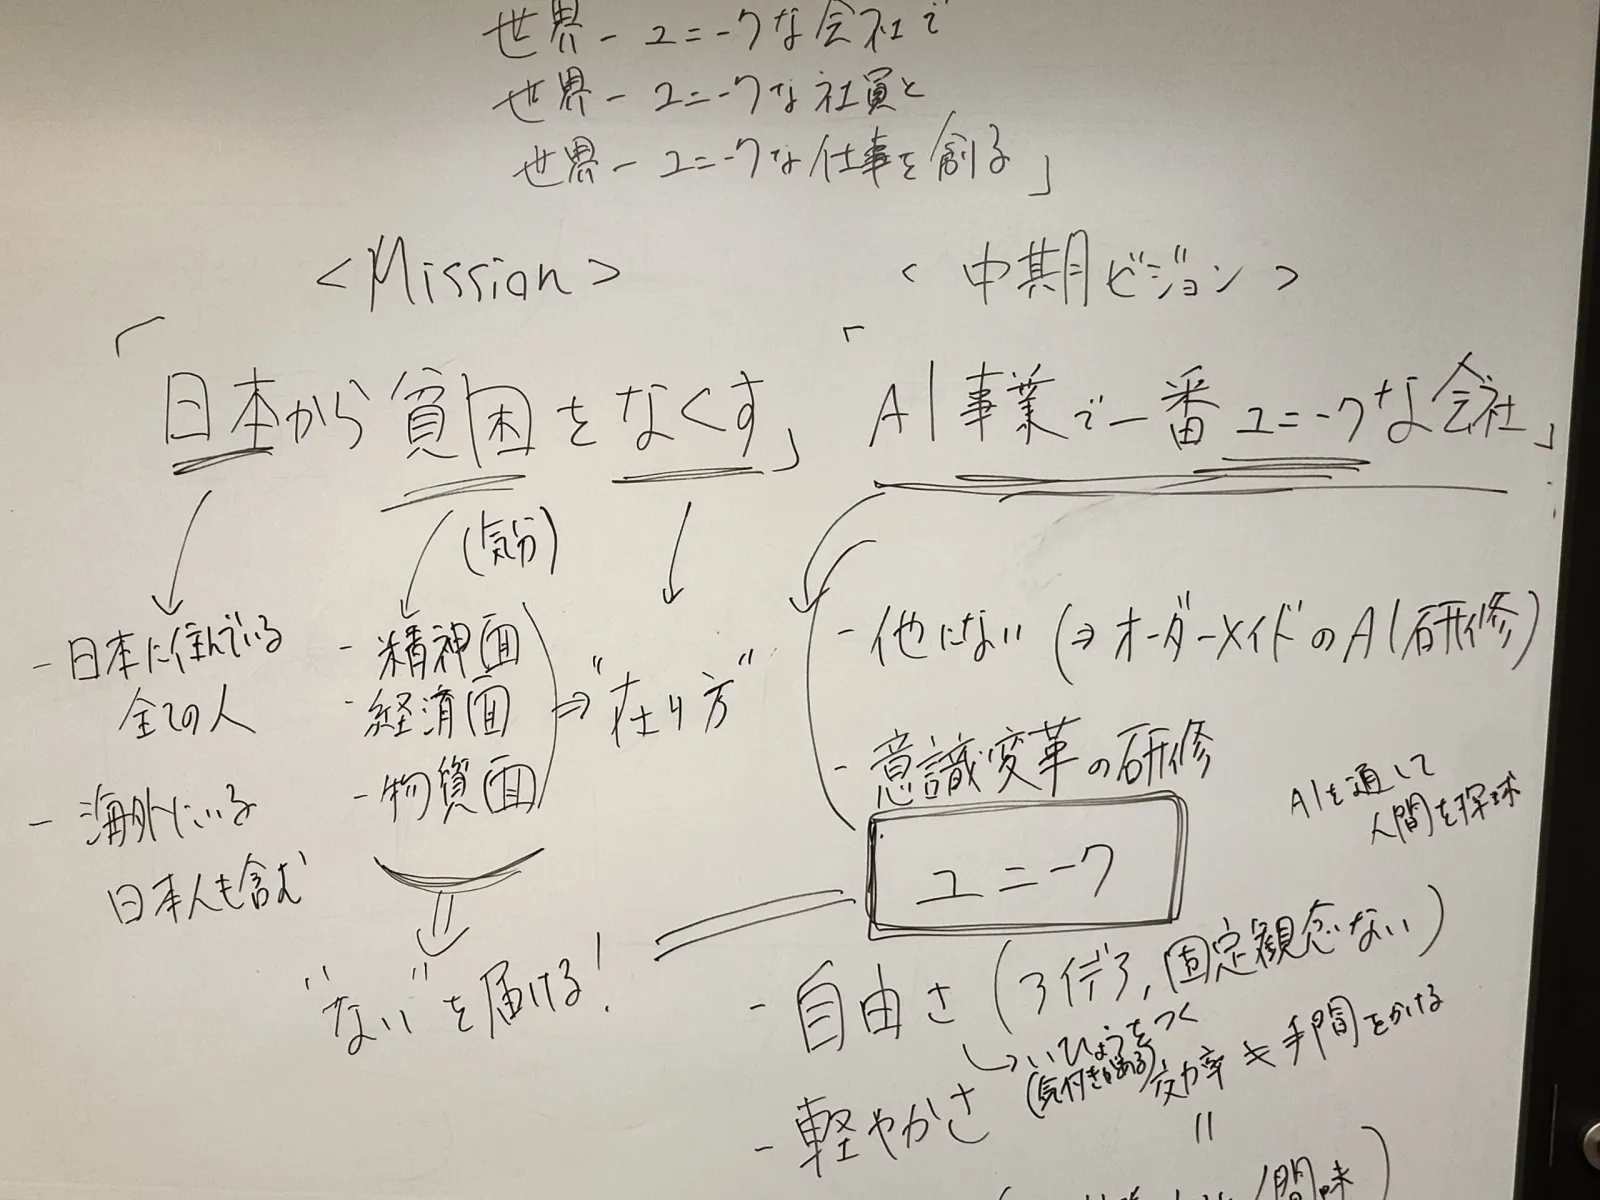 世界一ユニークな会社で
世界一ユニークな社員と
世界一ユニークな仕事を創る」
<Mission>
「日本から貧困をなくす」
(気分)
- 日本に住んでいる
全ての人
- 海外にいる
日本人も含む
- 精神面
- 経済面
- 物質面
⇒ "在り方"
"ない"を届ける!
<中期ビジョン>
「AI事業で一番ユニークな会社」
- 他にない (⇒オーダーメイドのAI研修)
- 意識変革の研修
AIを通して
人間を探求
ユニーク
- 自由さ (アイデア, 固定観念ない)
↳ いひょうをつく
(気付きがある)
効率 ≠ 手間をかける
=
- 軽やかさ
人間味)